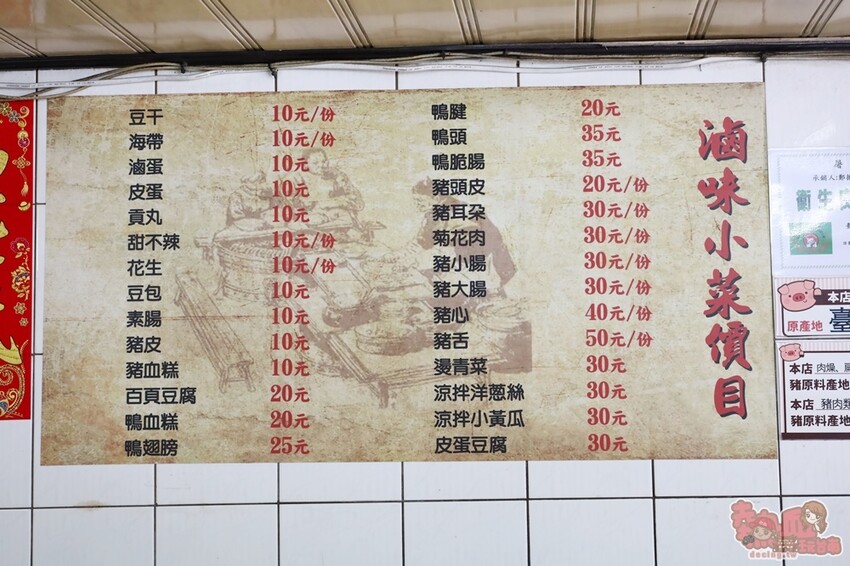 滷味小菜價目
豆干 10元/份
海帶 10元/份
滷蛋 10元
皮蛋 10元
貢丸 10元
甜不辣 10元/份
花生 10元/份
豆包 10元
素腸 10元
豬皮 10元
豬血糕 10元
百頁豆腐 20元
鴨血糕 20元
鴨翅膀 25元
鴨腱 20元
鴨頭 35元
鴨脆腸 35元
豬頭皮 20元/份
豬耳朵 30元/份
菊花肉 30元/份
豬小腸 30元/份
豬大腸 30元/份
豬心 40元/份
豬舌 50元/份
燙青菜 30元
涼拌洋蔥絲 30元
涼拌小黃瓜 30元
皮蛋豆腐 30元
衛生
本店
原產地 臺
本店 肉燥、
豬原料產地
本店 豬肉類
豬原料產地
熱血玩台南
decing.tw